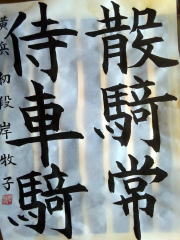 散騎常
侍車騎
横浜 初段 岸牧子